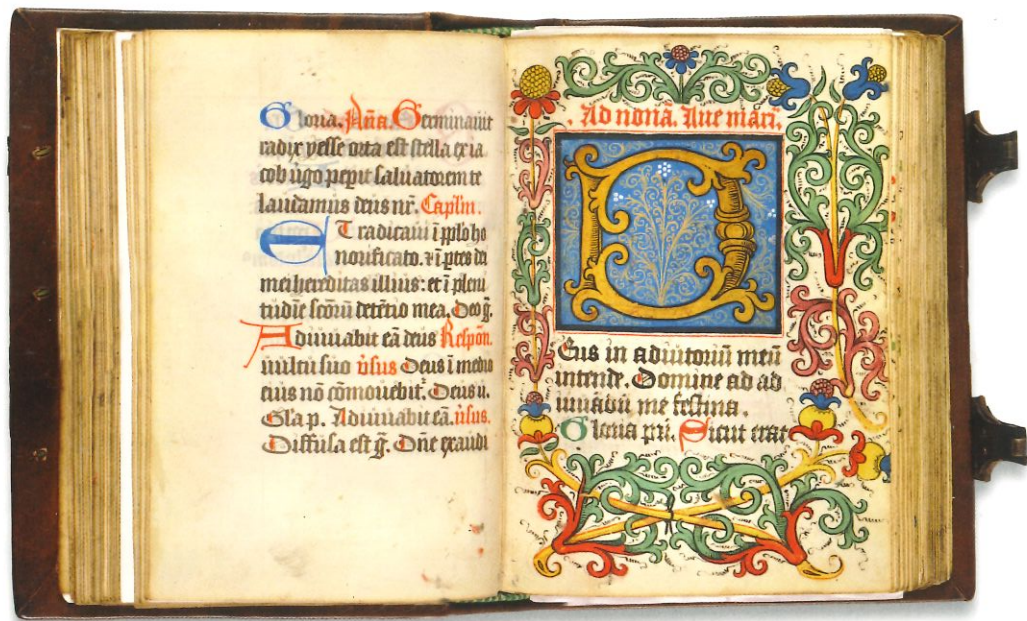 Gloria. Añа. Germinauit
radix yesse orta est stella ex ia
cob ũgo pepit saluatorem te
laudamus deus nr̃. Caplm̃.
ET radicaui ĩ pplo ho
norificato. ⁊ ĩ ptes dei
mei hereditas illius: et ĩ pleni
tudĩe scõrũ detẽtio mea. Deo g̃.
Adiuuabit eã deus Respon̄.
uultu suo ũsus Deus ĩ medio
eius nõ cõmouebit᷑. Deus u.
Gl̃a p. Adiuuabit eã. ũsus.
Diffusa est g̃. Dñe exaudi
Ad nonã. Aue mari.
DEus in adiutoriũ meũ
intende. Domine ad ad
iuuãdũ me festina.
Gloria pr̃i. Sicut erat